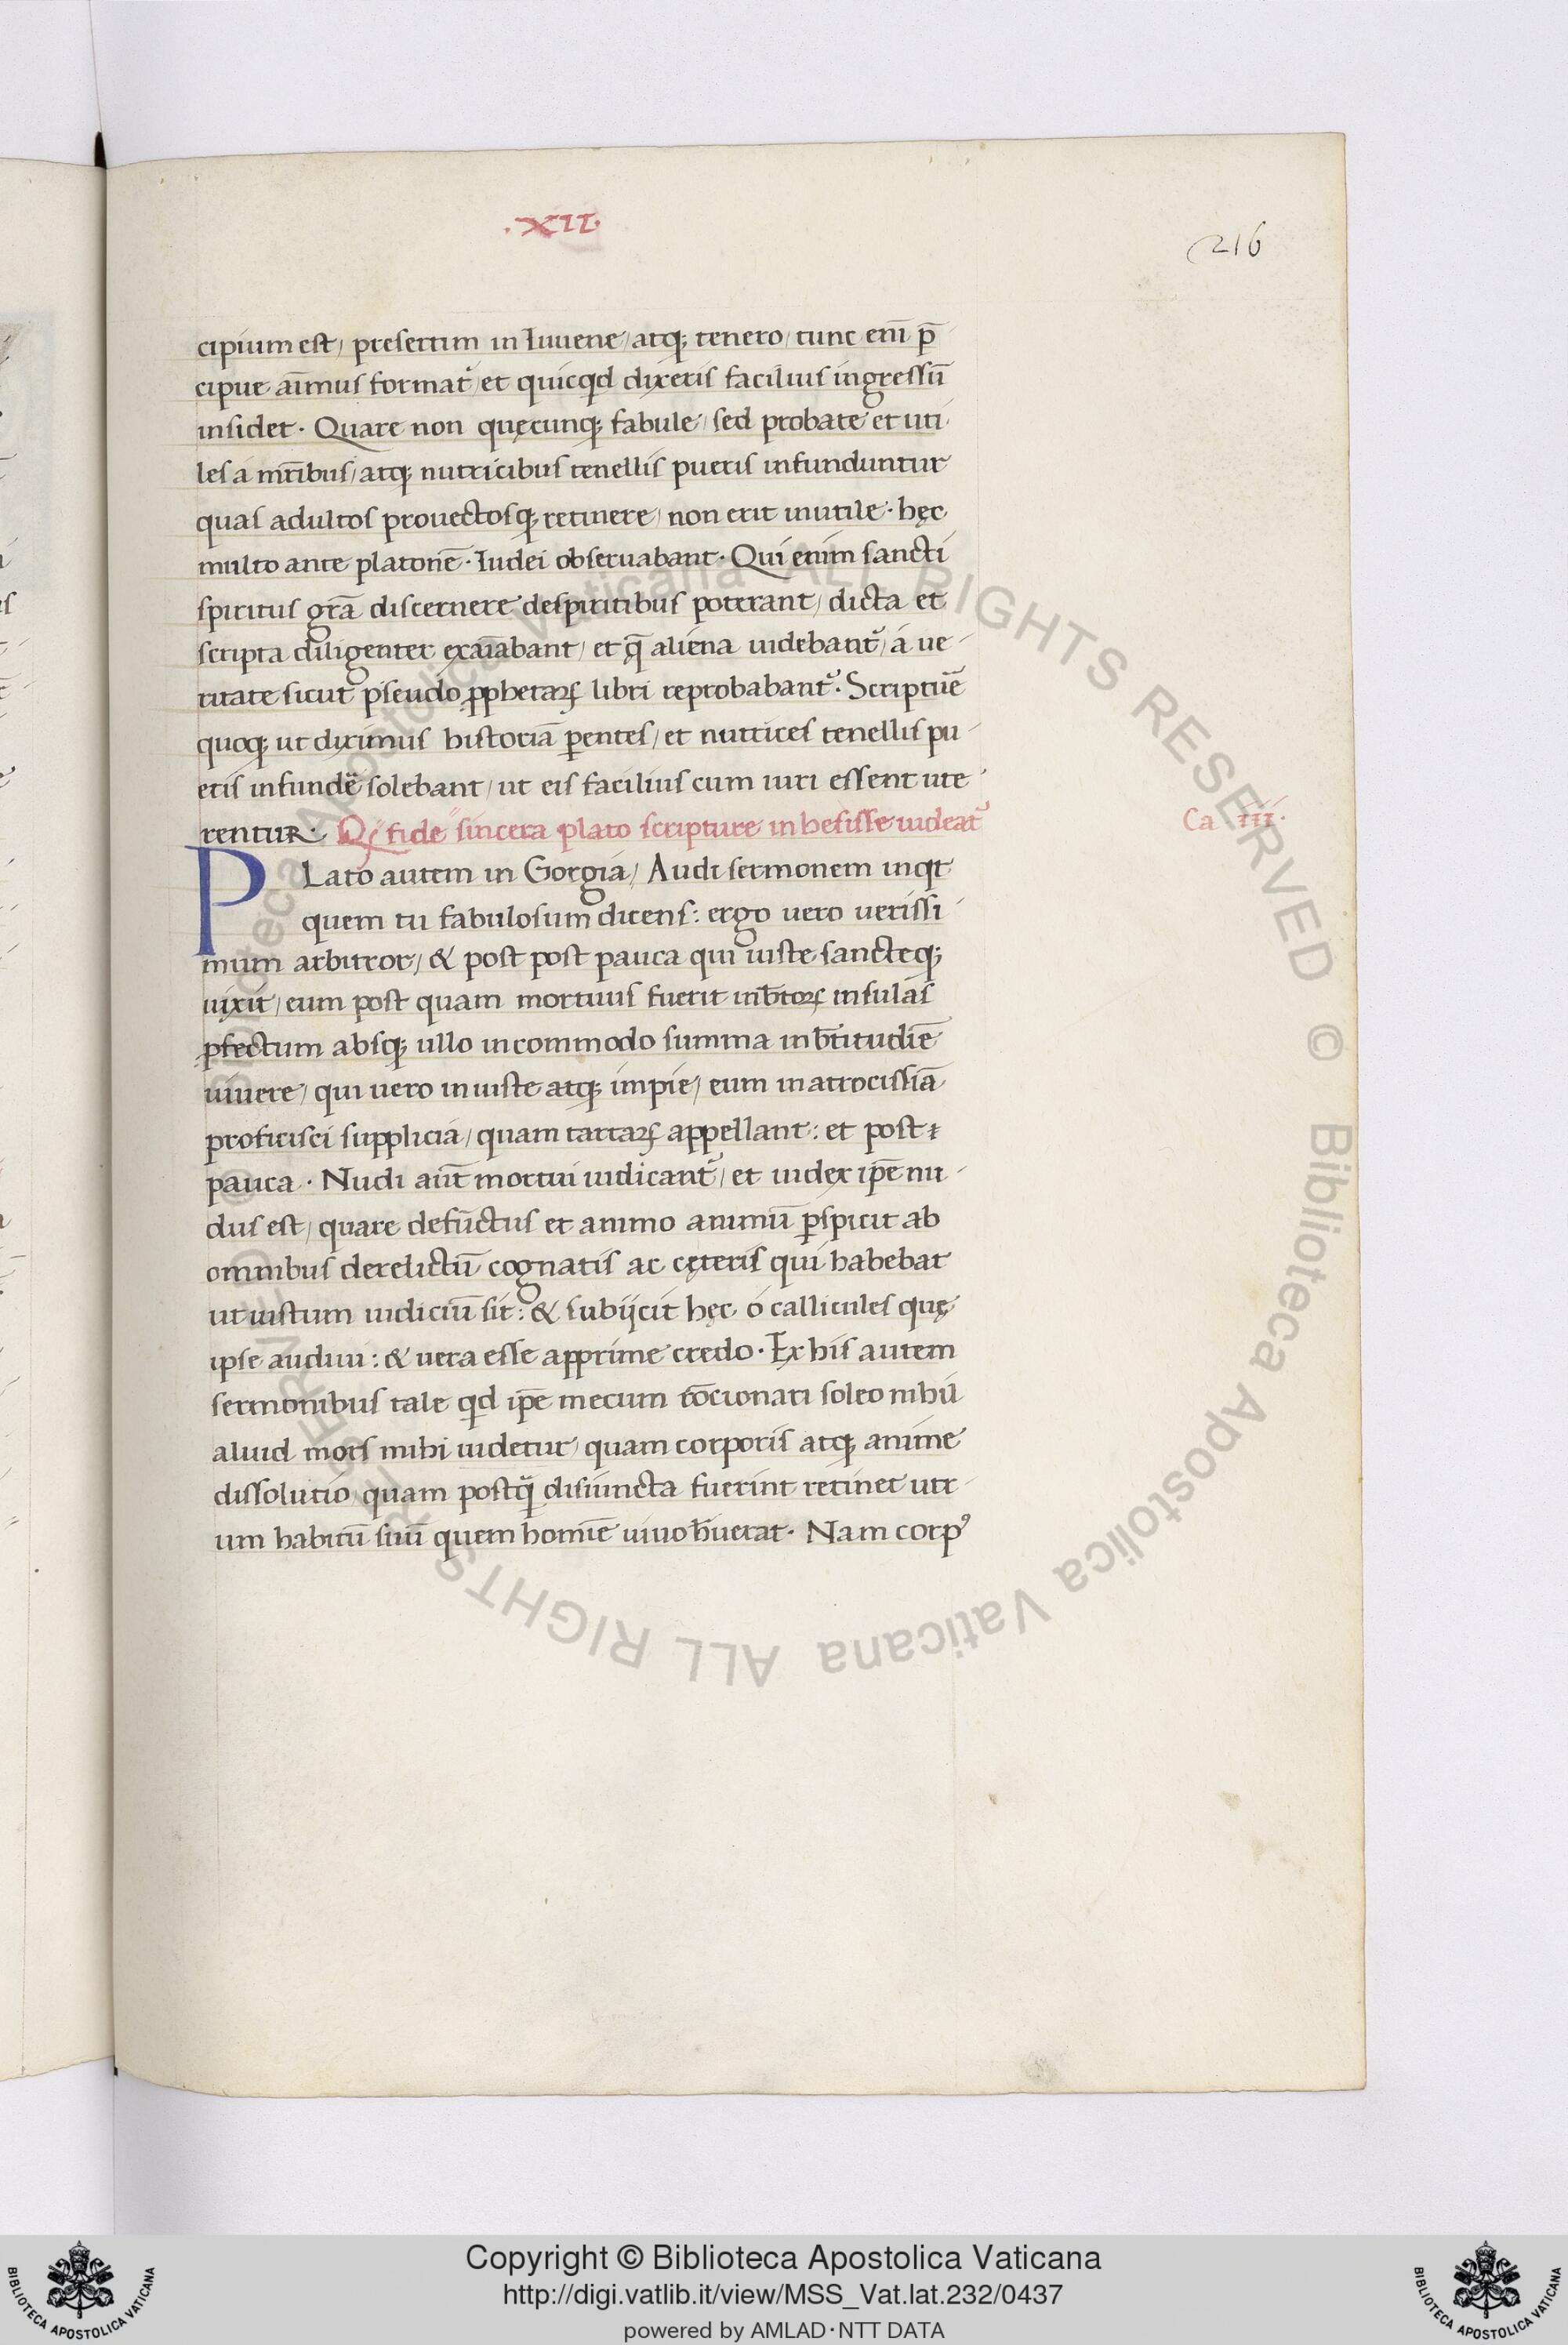 .XII.
216
cipium est/ presertim in Iuuene/ atq; tenero/ tunc enī p̄
cipue aīmus format᷑/ et quicqd dixeris facilius ingressū
insidet. Quare non quęcunq; fabule/ sed probate et uti
les a mr̄ibus/ atq; nutricibus tenellis pueris infunduntur
quas adultos prouectosq; retinere/ non erit inutile. hęc
multo ante platonē. Iudei obseruabant. Qui enim sancti
spiritus gr̄a discernere despiritibus poterant/ dicta et
scripta diligenter exaīabant/ et q̄ aliena uidebant᷑/ á ue-
ritate sicut pseudo ꝓphetaꝝ libri reprobabant᷑. Scriptuē
quoq; ut diximus historiā ꝑentes/ et nutrices tenellis pu-
eris infundē solebant/ ut eis facilius cum iuri essent ute
rentur. Qꝫ fide sincera plato scripture inhesisse uideat᷑
Ca III.
PLato autem in Gorgia/ Audi sermonem inqt
quem tu fabulosum dicens: ergo uero uerissi-
mum arbitror/ & post post pauca qui iuste sancteq;
uixit/ eum post quam mortuus fuerit inb̄toꝝ insulas
ꝓfectum absq; ullo incommodo summa inb̄titudiē
uiuere/ qui uero iniuste atq; impie/ eum inatrocissiā
proficisci supplicia/ quam tartaꝝ appellant: et post
pauca. Nudi aūt mortui iudicant᷑/ et iudex ip̄e nu-
dus est/ quare defūctus et animo animū ꝑspicit ab
omnibus derelictū cognatis ac cęteris qui habebat
ut iustum iudiciū sit: & subijcit hęc ó callicules quę
ipse audiui: & uera esse apprime credo. Ex his autem
sermonibus tale qd ip̄e mecum r̄ocionari soleo nihil
aluid mors mihi uidetur/ quam corporis atq; anime
dissolutio/ quam postq̄ disiuncta fuerint retinet utr-
um habitū suū quem homīe uiuo h̄uerat. Nam corpꝰ
Copyright © Biblioteca Apostolica Vaticana
http://digi.vatlib.it/view/MSS_Vat.lat.232/0437
powered by AMLAD·NTT DATA